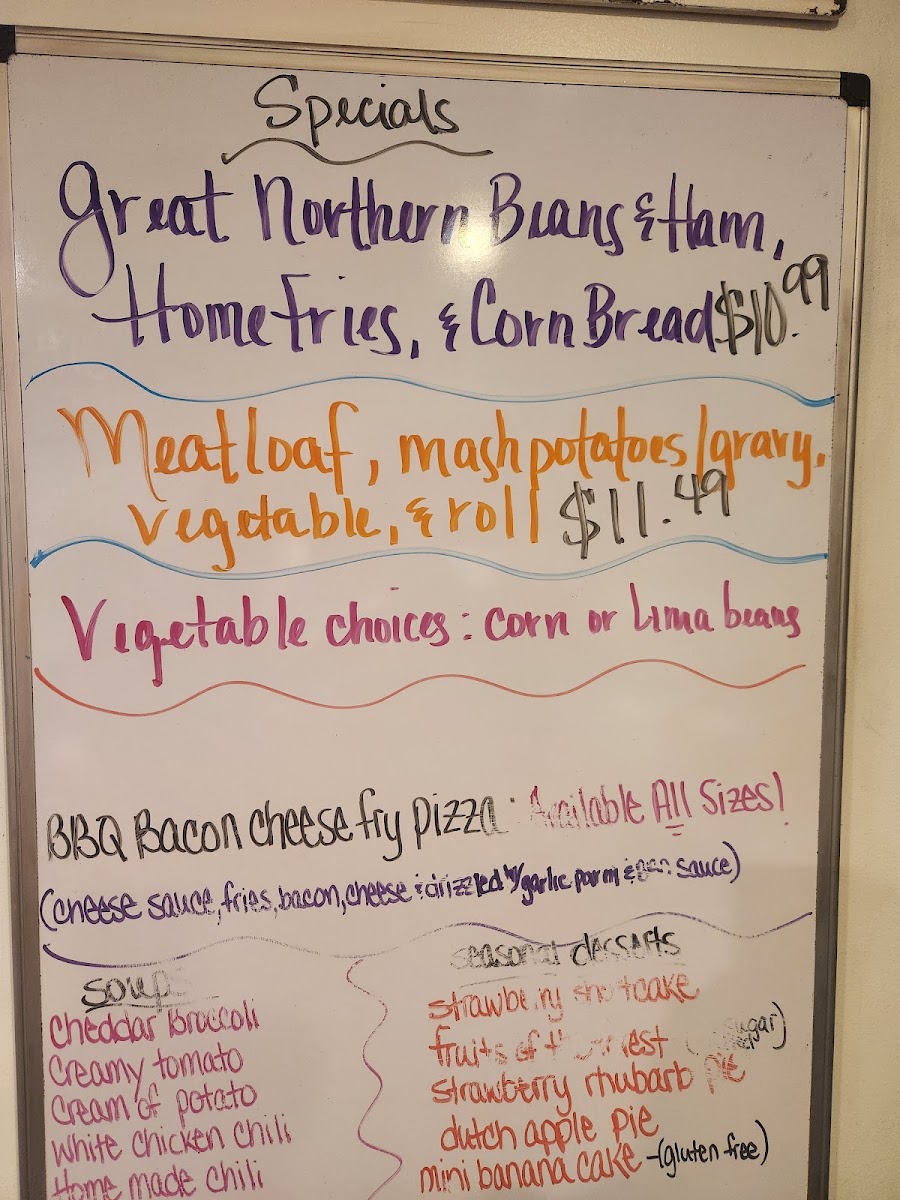 Specials
Great Northern Beans & Ham,
Home Fries, & Corn Bread $10.99
Meatloaf, mash potatoes/gravy,
vegetable, & roll $11.49
Vegetable choices: corn or Lima beans
BBQ Bacon cheese fry pizza: Available All Sizes!
(cheese sauce, fries, bacon, cheese & drizzled w/ garlic parm & sauce)
Soups
Cheddar Broccoli
Creamy tomato
Cream of potato
White chicken chili
Home made chili
Seasonal desserts
Strawberry shortcake
fruits of sugar)
Strawberry rhubarb pie
dutch apple pie
mini banana cake -(gluten free)